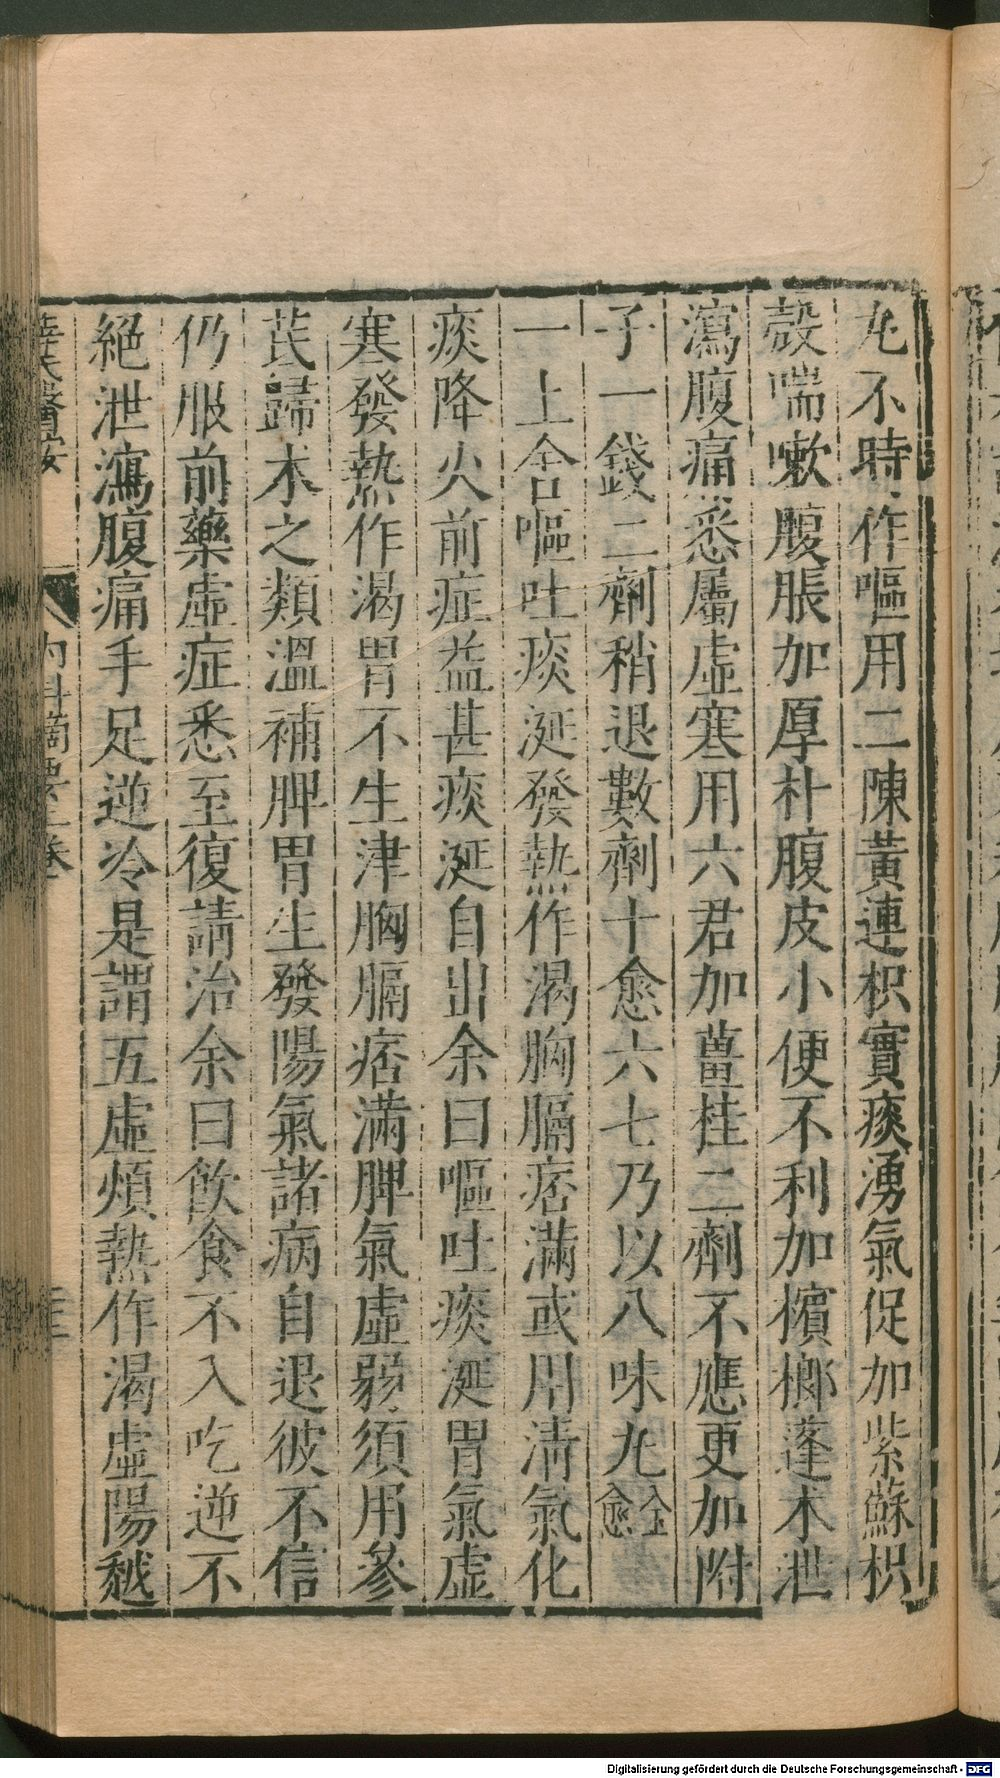 丸不時作嘔用二陳黃連枳實痰湧氣促加紫蘇枳
殼喘嗽腹脹加厚朴腹皮小便不利加檳榔蓬朮泄
瀉腹痛悉屬虛寒用六君加薑桂二劑不應更加附
子一錢二劑稍退數劑十愈六七乃以八味丸全愈
一上舍嘔吐痰涎發熱作渴胸膈痞滿或用清氣化
痰降火前症益甚痰涎自出余曰嘔吐痰涎胃氣虛
寒發熱作渴胃不生津胸膈痞滿脾氣虛弱須用參
芪歸朮之類溫補脾胃生發陽氣諸病自退彼不信
仍服前藥虛症悉至復請治余曰飲食不入吃逆不
絕泄瀉腹痛手足逆冷是謂五虛煩熱作渴虛陽越
內科摘要上卷
Digitalisierung gefördert durch die Deutsche Forschungsgemeinschaft - DFG